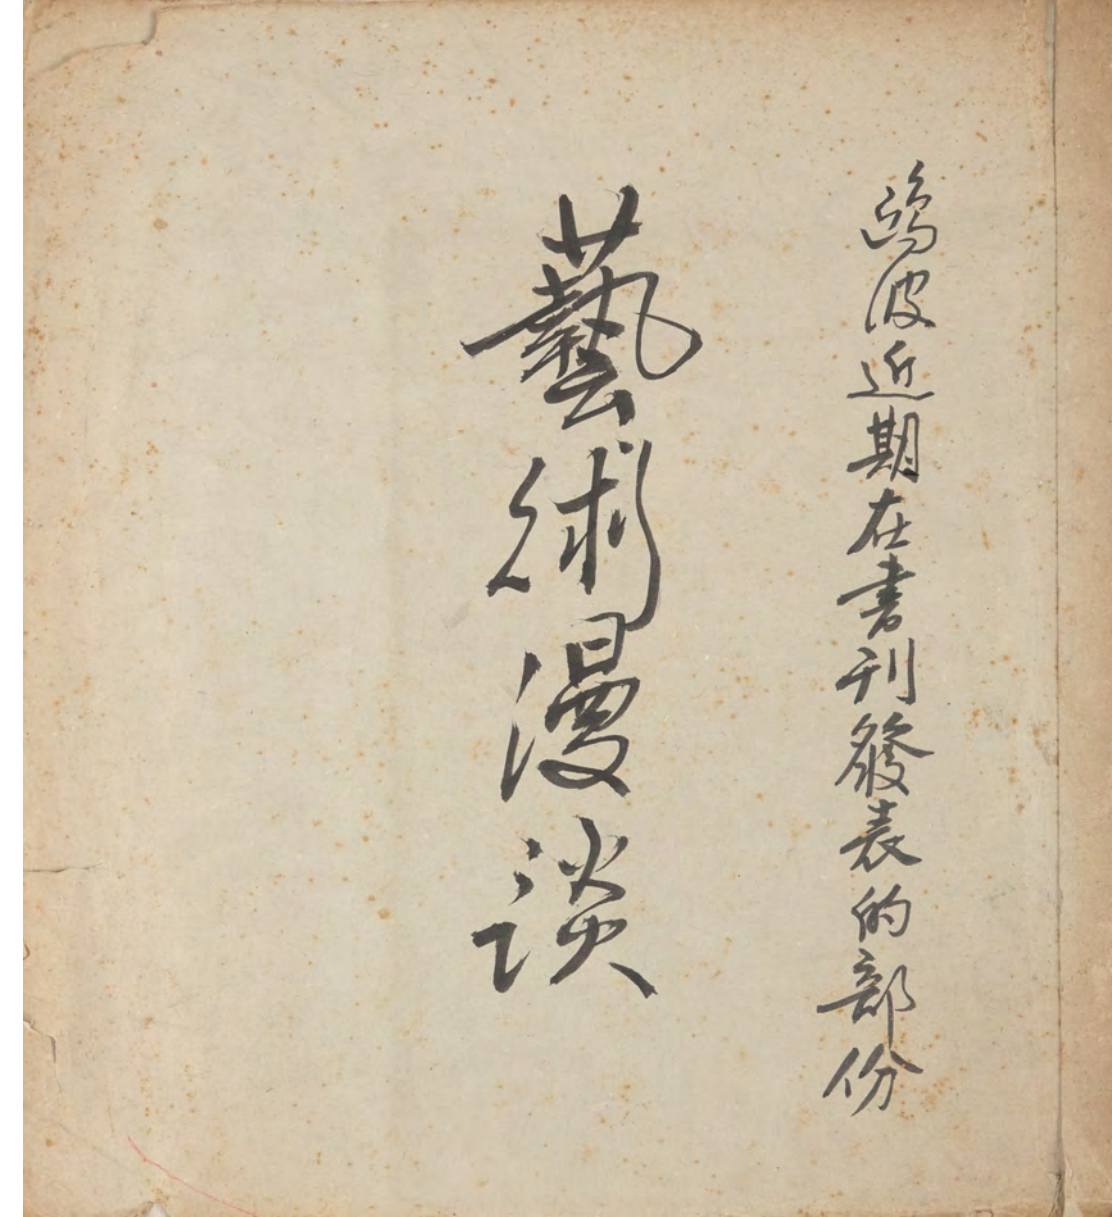 鷗波近期在書刊發表的部份
藝術漫談